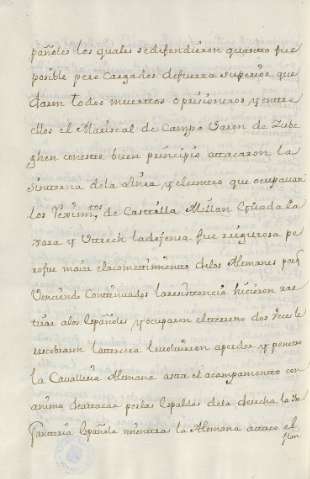 pañoles los quales se difendieron quanto fue
posible pero cargados de fuerza superior que
daron todos muertos o prisioneros y entre
ellos el Mariscal de Campo Varon de Zube
ghen con este buen principio attacaron la
sinistra de la linea y el centro que ocupavan
los Reximtos de Castilla Milan Guada la
xara y Utrech la defensa fue rigurosa pe
ro fue maior el acometimiento de los Alemanes pues
Venciendo continuados la resistencia hicieron re
tirar a los Españoles y ocuparon el terreno dos veces le
recobraron la tercera le volvieron a perder y penetro
la Cavalleria Alemana asta el acampamento con
animo de atacar por las espaldas de la derecha la In
fanteria Española mientras la Alemana attaco el
flan